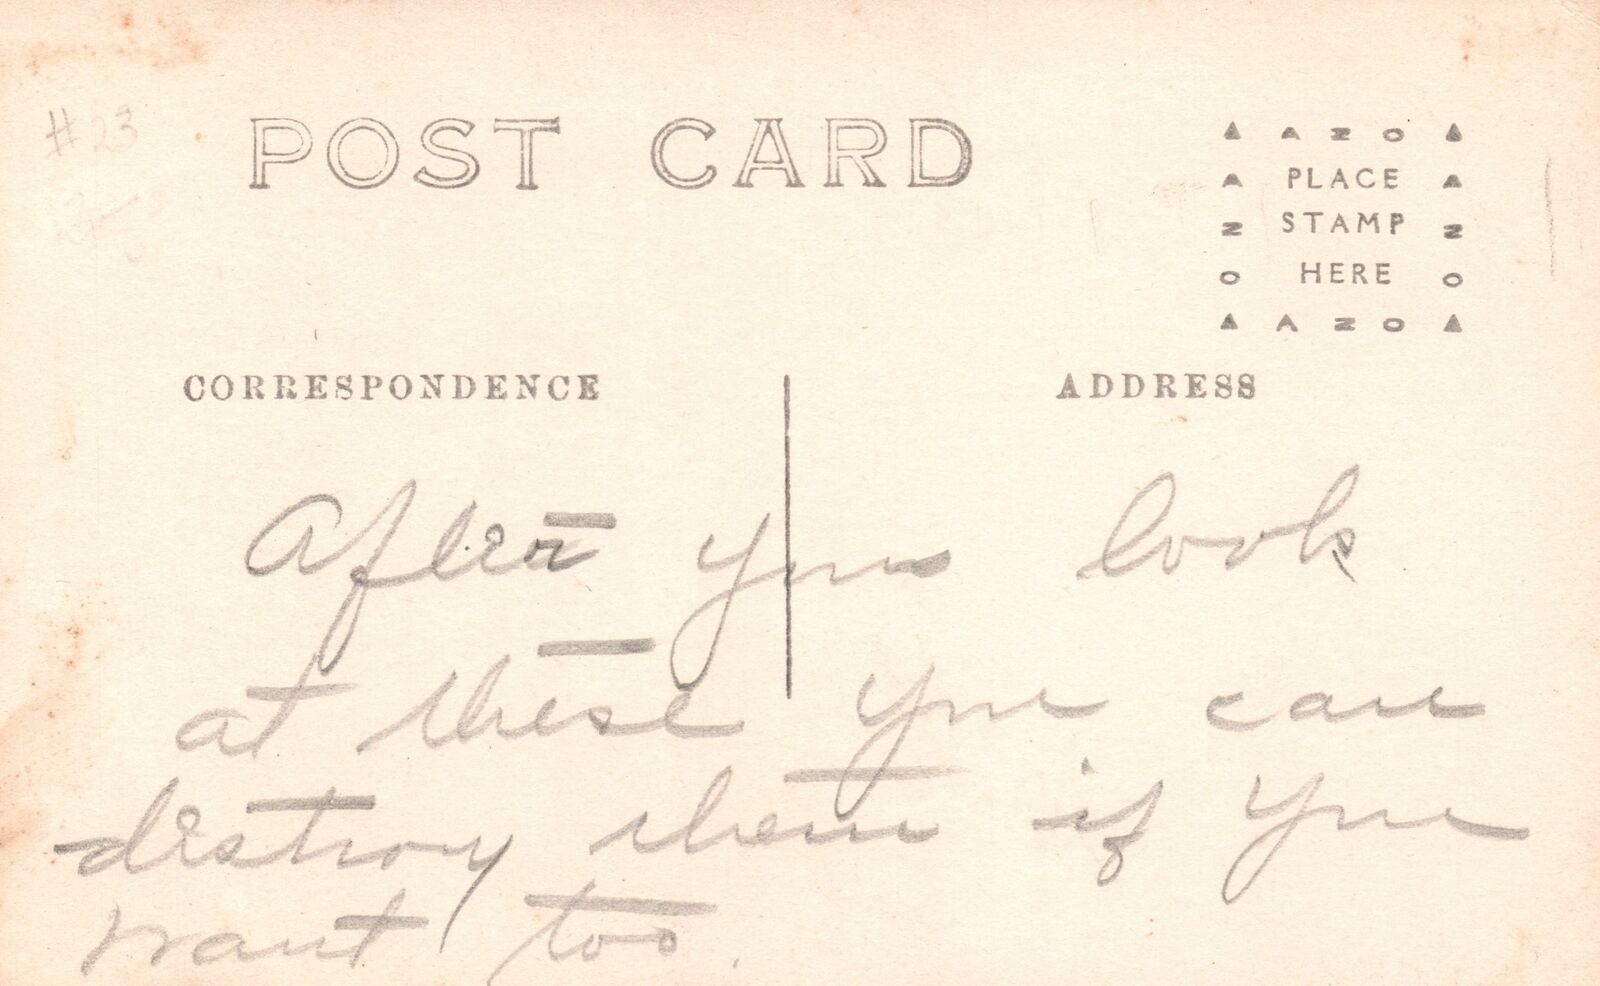 #23
POST CARD
AZO
PLACE
STAMP
HERE
AZO
CORRESPONDENCE
ADDRESS
After you look
at these you can
destroy them if you
want too.